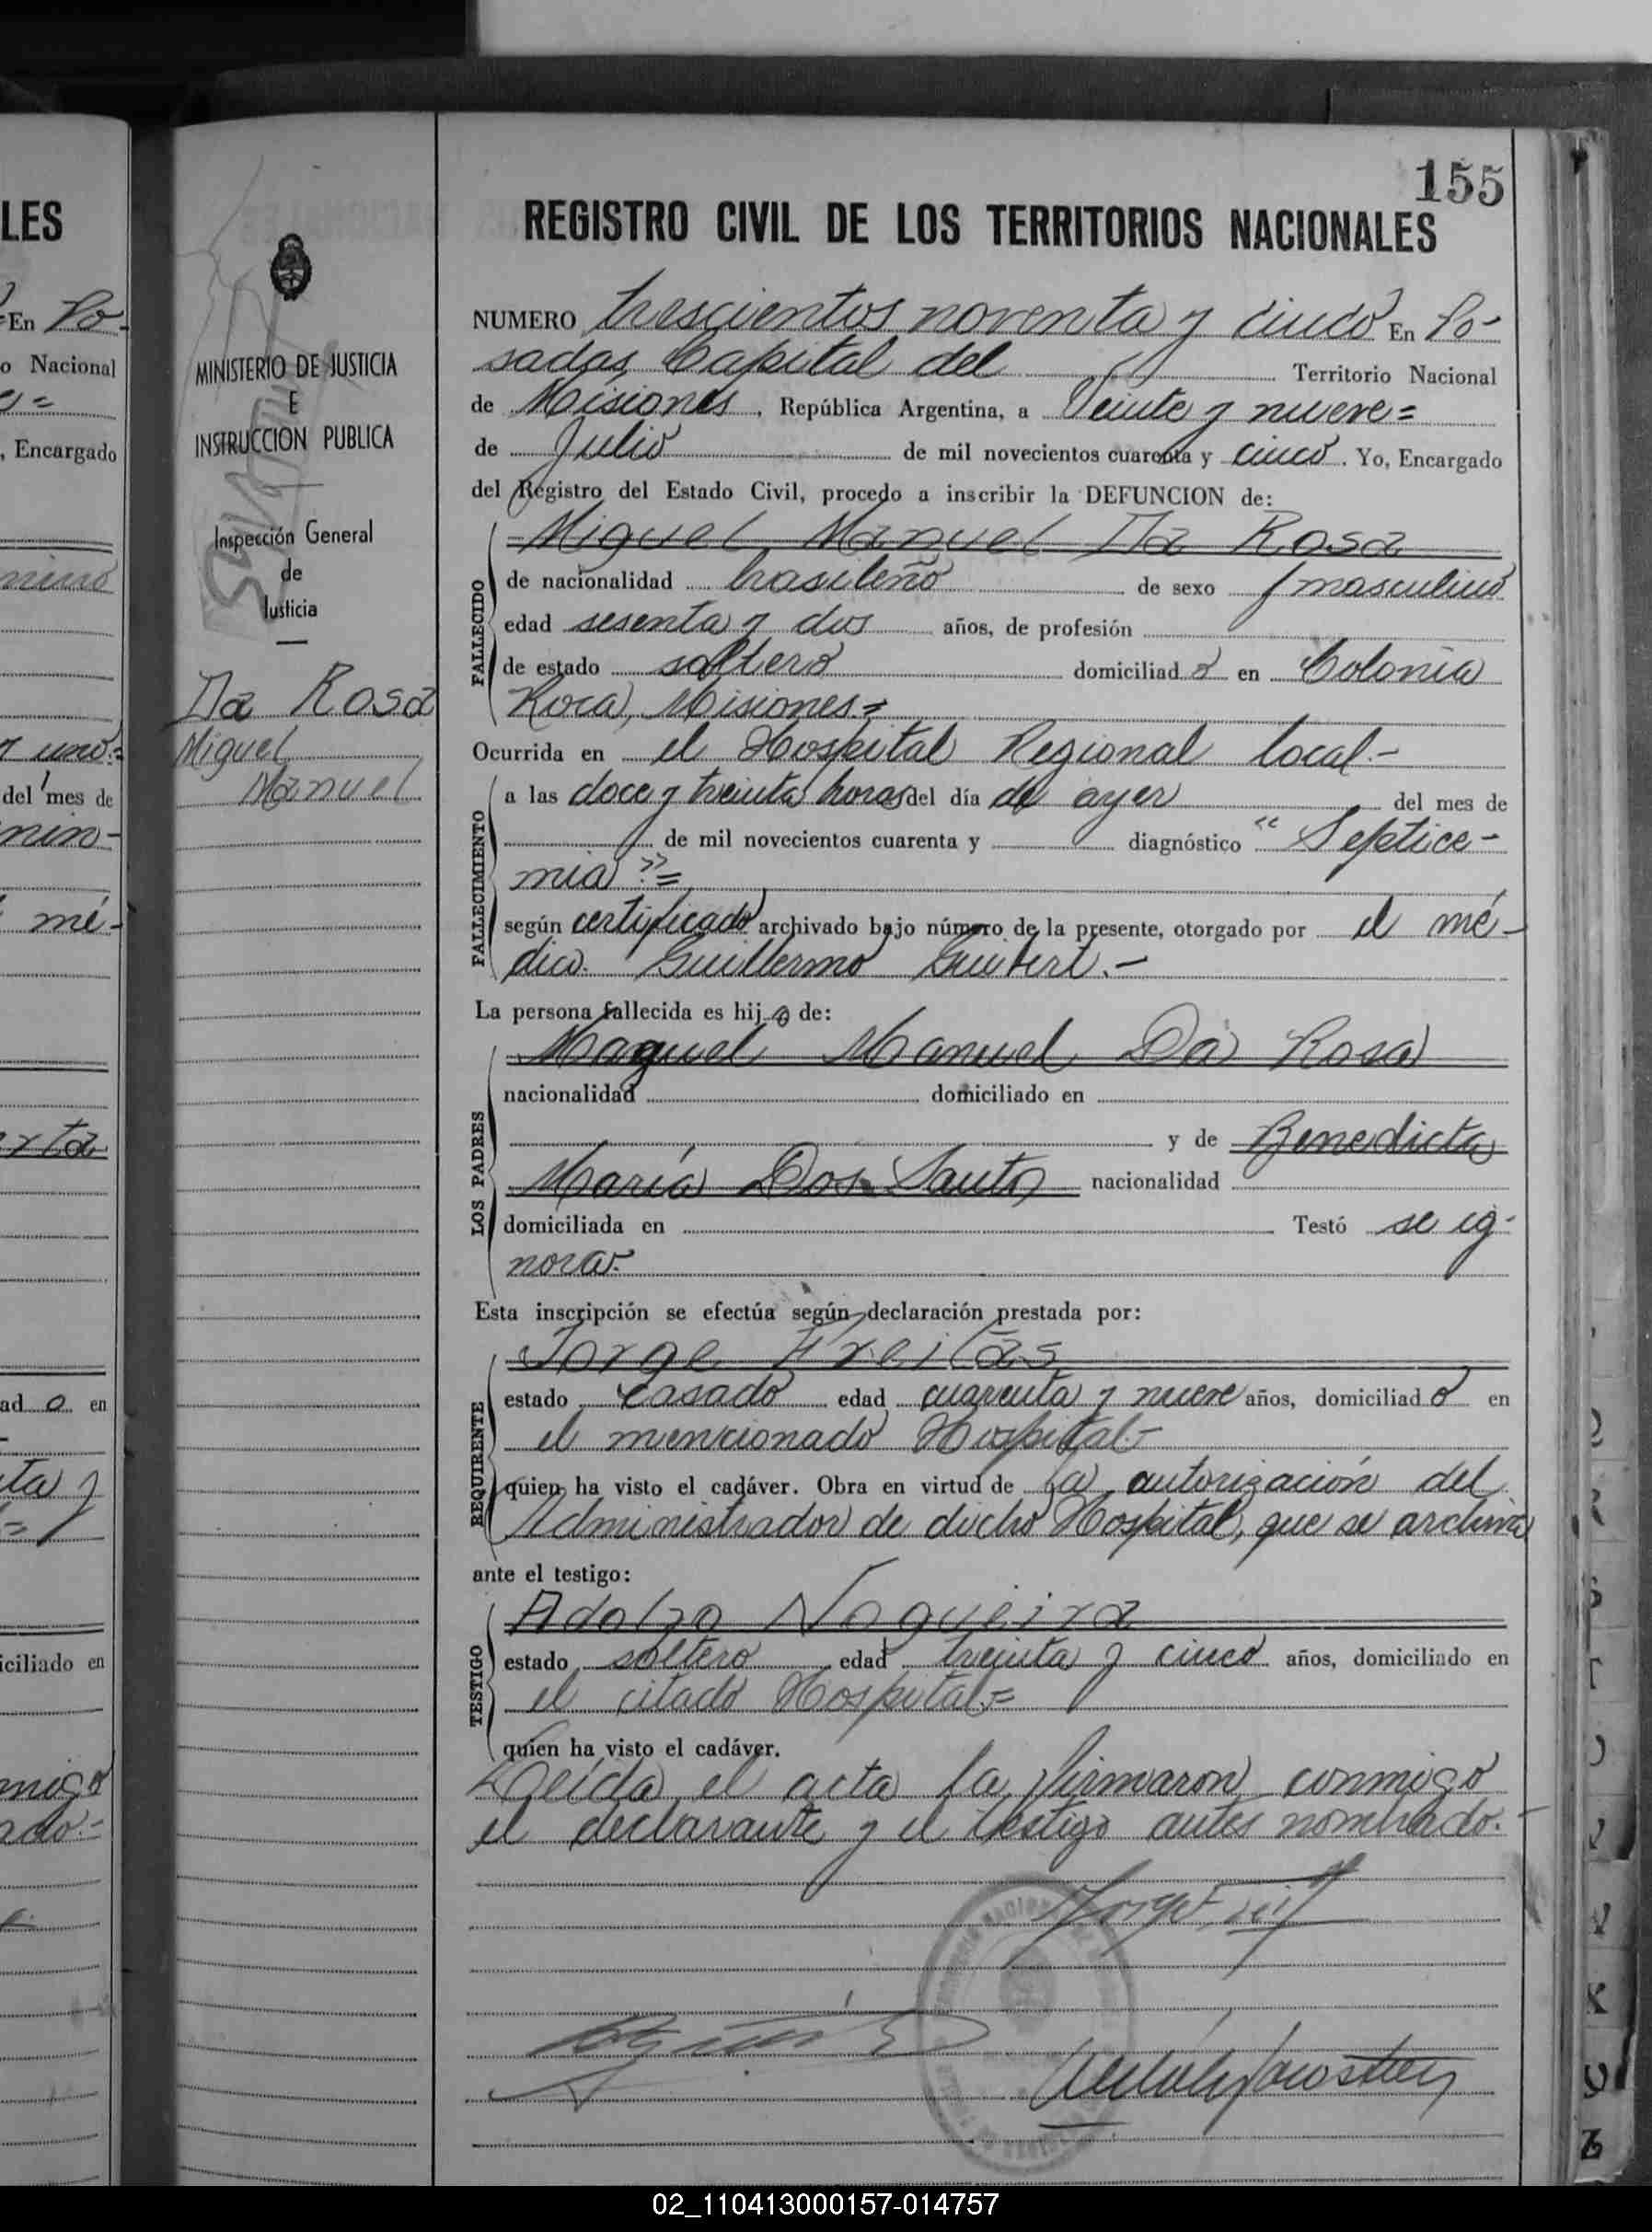 155
REGISTRO CIVIL DE LOS TERRITORIOS NACIONALES
MINISTERIO DE JUSTICIA
E
INSTRUCCION PUBLICA
Inspección General
de
Justicia
Da Rosa
Miguel
Manuel
NUMERO trescientos noventa y cinco En Po-
sadas Capital del Territorio Nacional
de Misiones, República Argentina, a Veinte y nueve=
de Julio de mil novecientos cuarenta y cinco. Yo, Encargado
del Registro del Estado Civil, procedo a inscribir la DEFUNCION de:
Miguel Manuel Da Rosa
FALLECIDO
de nacionalidad brasileño de sexo masculino
edad sesenta y dos años, de profesión
de estado soltero domiciliad o en Colonia
Roca, Misiones=
Ocurrida en el Hospital Regional local.-
FALLECIMIENTO
a las doce y treinta horas del día de ayer del mes de
de mil novecientos cuarenta y diagnóstico "Septice-
mia"=
según certificado archivado bajo número de la presente, otorgado por el mé-
dico Guillermo
La persona fallecida es hijo de:
LOS PADRES
Manuel Da Rosa
nacionalidad domiciliado en
y de Benedicta
María Dos Santos nacionalidad
domiciliada en Testó se ig-
nora.
Esta inscripción se efectúa según declaración prestada por:
REQUIRENTE
Jorge Freitas
estado casado edad cuarenta y nueve años, domiciliad o en
el mencionado Hospital-
quien ha visto el cadáver. Obra en virtud de la autorización del
Administrador de dicho Hospital, que se archiva
ante el testigo:
TESTIGO
Adolfo Nogueira
estado soltero edad treinta y cinco años, domiciliado en
el citado Hospital=
quien ha visto el cadáver.
Leída el acta la firmaron conmigo
el declarante y el testigo antes nombrado.-
02_110413000157-014757